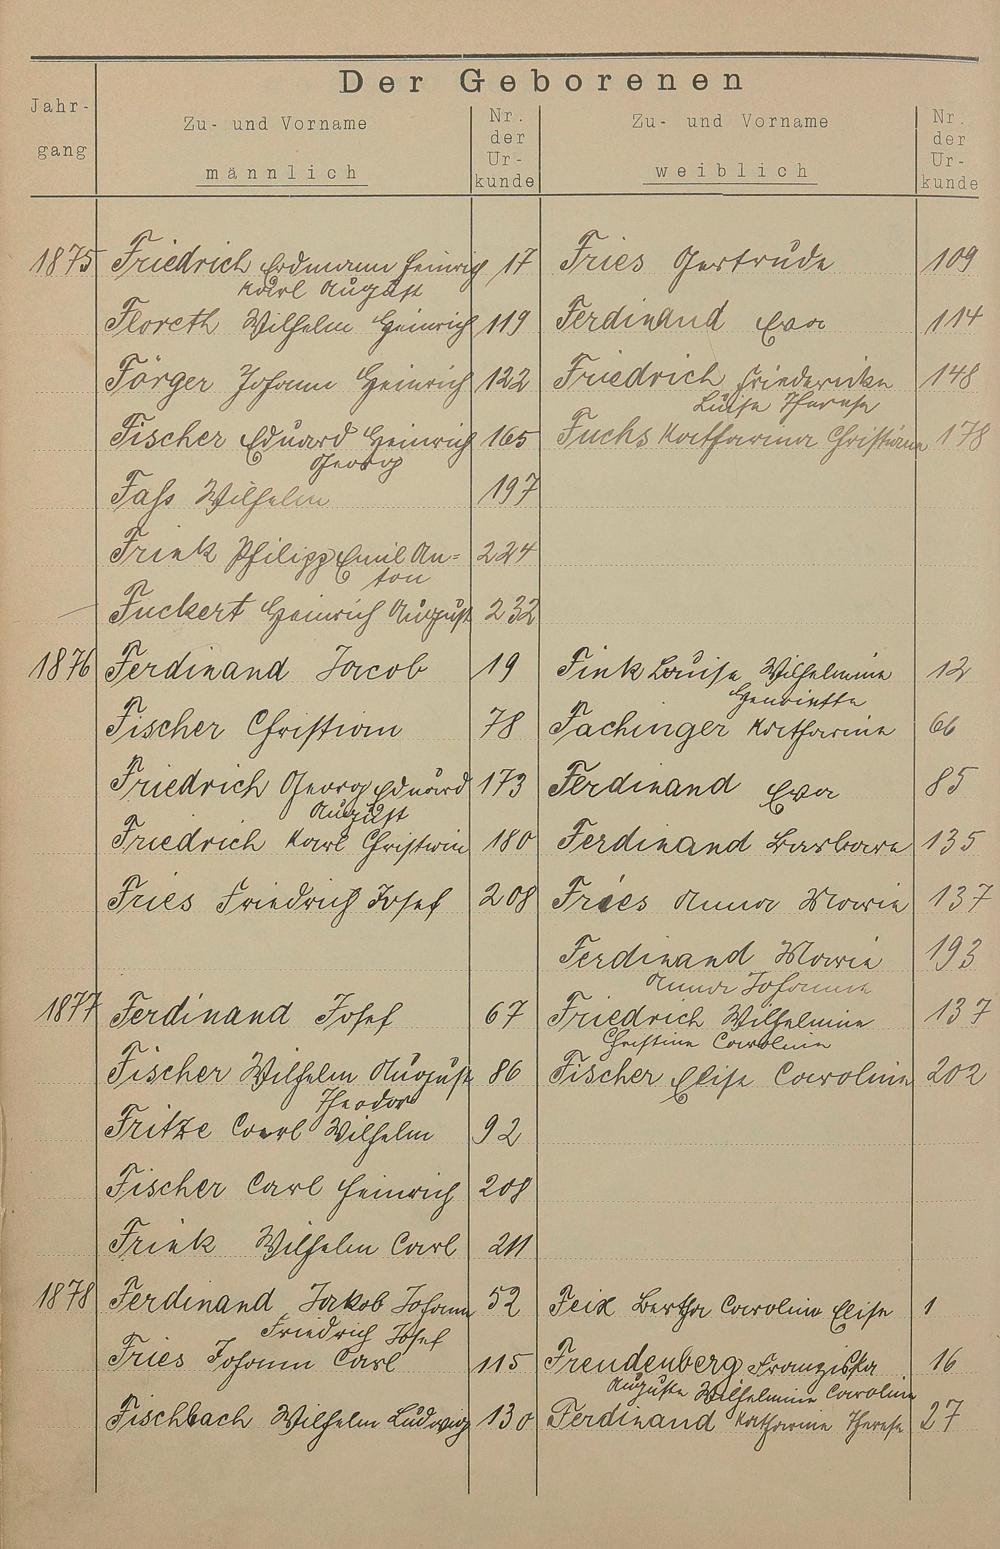 Der Geborenen
Jahr-
gang
Zu- und Vorname
männlich
Nr.
der
Ur-
kunde
Zu- und Vorname
weiblich
Nr.
der
Ur-
kunde
1875 Friedrich Erdmann Heinrich 17 Fries Gertrude 109
Karl August
Floreth Wilhelm Heinrich 119 Ferdinand Eva 114
Förger Johann Heinrich 122 Friedrich Friedericke 148
Luise Therese
Fischer Eduard Heinrich 165 Fuchs Katharina Christiane 178
Georg
Faß Wilhelm 197
Frink Philipp Emil An= 224
ton
Fuckert Heinrich August 232
1876 Ferdinand Jacob 19 Fink Louise Wilhelmine 12
Henriette
Fischer Christian 78 Fachinger Katharine 66
Friedrich Georg Eduard 173 Ferdinand Eva 85
August
Friedrich Karl Christian 180 Ferdinand Barbara 135
Fries Friedrich Josef 208 Fries Anna Maria 137
Ferdinand Maria 193
Anna Johanna
1877 Ferdinand Josef 67 Friedrich Wilhelmine 137
Christine Caroline
Fischer Wilhelm August 86 Fischer Elise Caroline 202
Theodor
Fritze Carl Wilhelm 92
Fischer Carl Heinrich 208
Frink Wilhelm Carl 211
1878 Ferdinand Jakob Johann 52 Feix Bertha Carolina Elise 1
Friedrich Josef
Fries Johann Carl 115 Freudenberg Franziska 16
Auguste Wilhelmine Caroline
Fischbach Wilhelm Ludwig 130 Ferdinand Katharina Therese 27